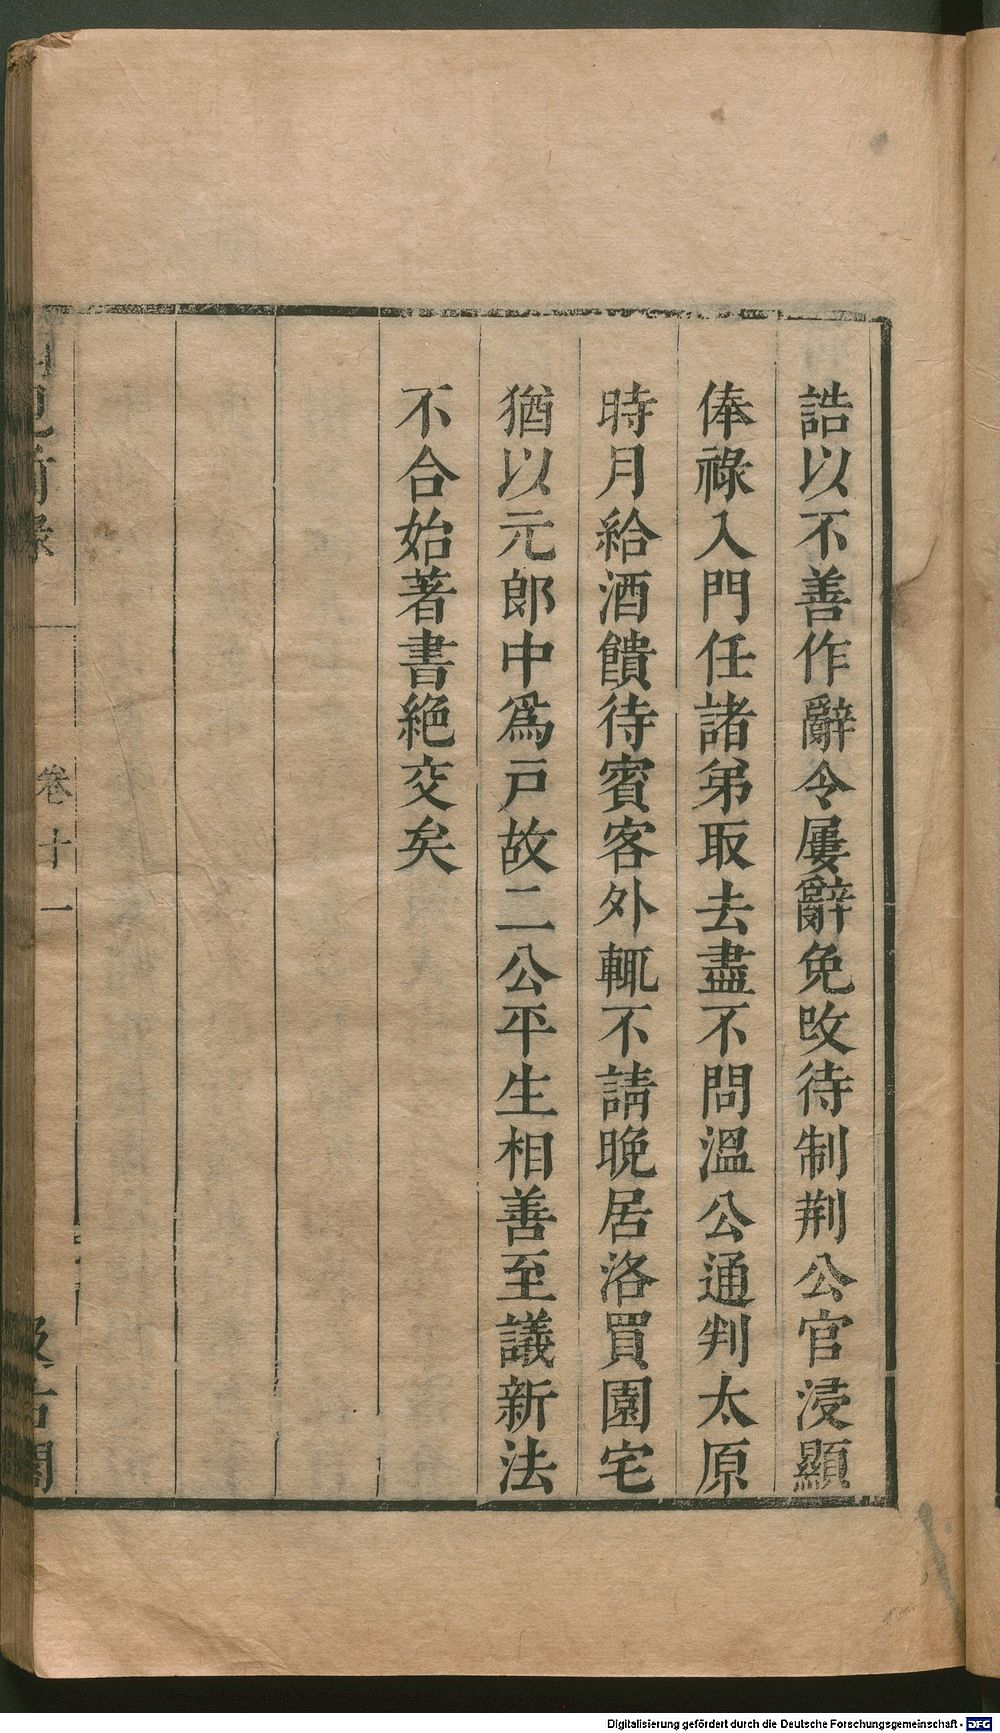 誥以不善作辭令屢辭免改待制荆公官浸顯
俸祿入門任諸弟取去盡不問溫公通判太原
時月給酒饋待賓客外輒不請晚居洛買園宅
猶以元郎中爲戸故二公平生相善至議新法
不合始著書絶交矣
卷十一
Digitalisierung gefördert durch die Deutsche Forschungsgemeinschaft - DFG